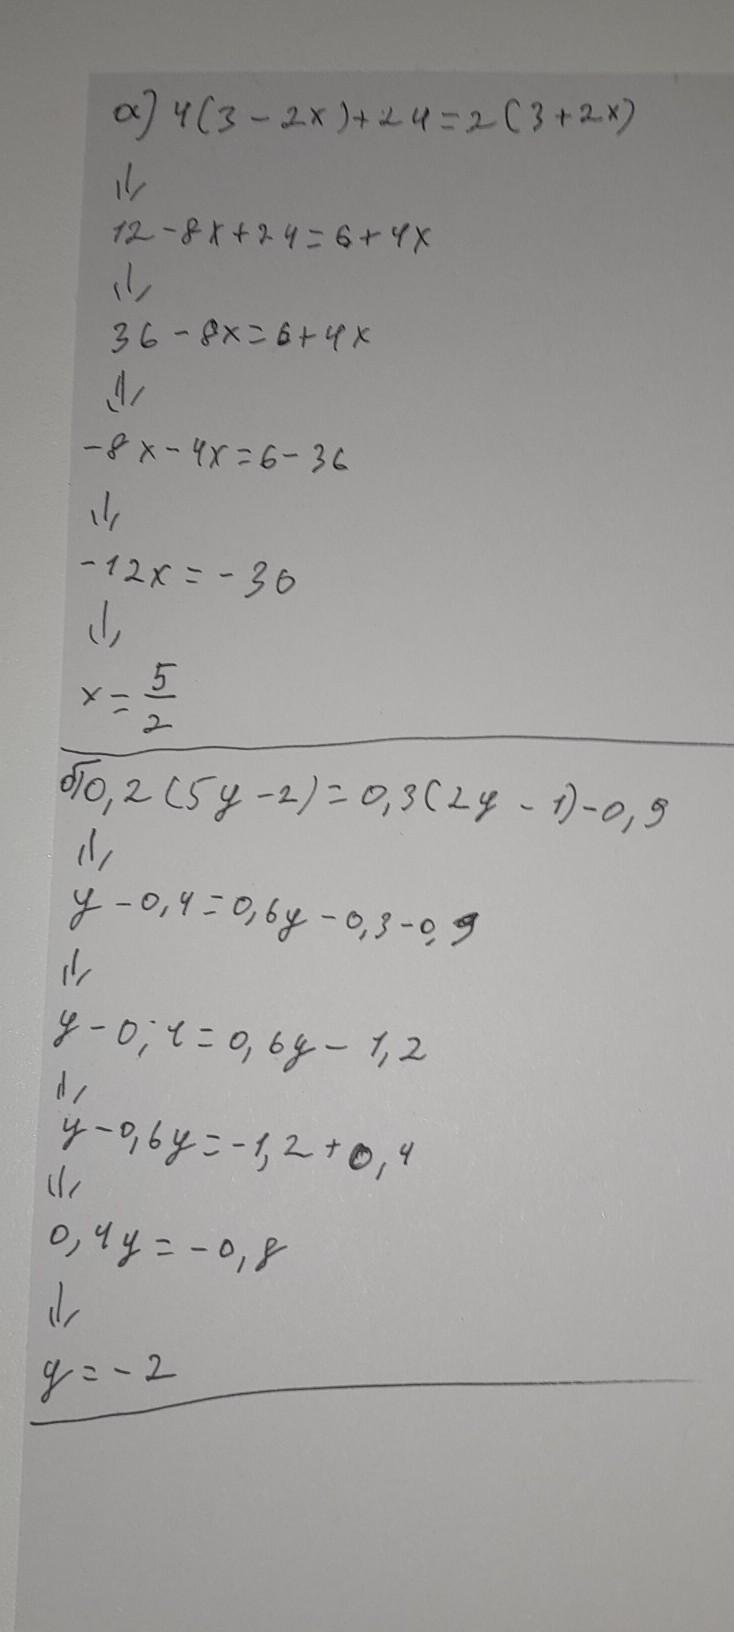 а) 4(3-2x)+24=2(3+2x)
⇓
12-8x+24=6+4x
⇓
36-8x=6+4x
⇓
-8x-4x=6-36
⇓
-12x=-30
⇓
x=5/2
б) 0,2(5y-2)=0,3(2y-1)-0,9
⇓
y-0,4=0,6y-0,3-0,9
⇓
y-0,4=0,6y-1,2
⇓
y-0,6y=-1,2+0,4
⇓
0,4y=-0,8
⇓
y=-2